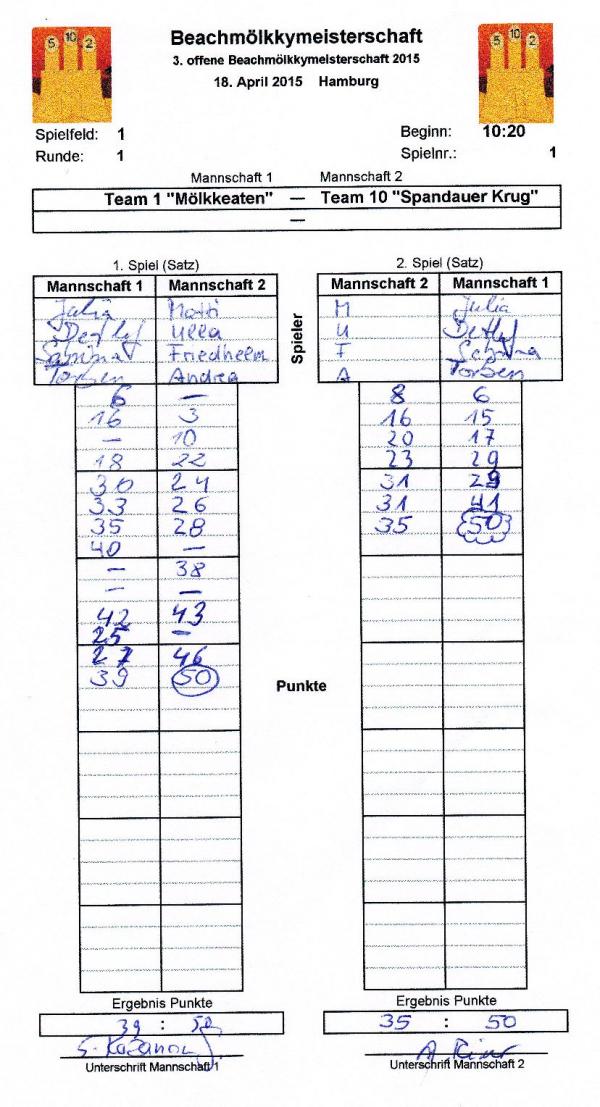 5 10 2
Beachmölkkymeisterschaft
5 10 2
3. offene Beachmölkkymeisterschaft 2015
18. April 2015 Hamburg
Spielfeld: 1 Beginn: 10:20
Runde: 1 Spielnr.: 1
Mannschaft 1 Mannschaft 2
Team 1 "Mölkkeaten" — Team 10 "Spandauer Krug"
—
1. Spiel (Satz) 2. Spiel (Satz)
Mannschaft 1 Mannschaft 2 Spieler Mannschaft 2 Mannschaft 1
Julia Matti M Julia
Detlef Ulla U Detlef
Sabrina Friedhelm F Sabrina
Torben Andrea A Torben
6 — 8 6
16 3 16 15
— 10 20 17
18 22 23 29
30 24 31 29
33 26 31 41
35 28 35 50
40 —
— 38
— —
42 43
25 —
27 46
39 50
Punkte
Ergebnis Punkte Ergebnis Punkte
39 : 50 35 : 50
Unterschrift Mannschaft 1 Unterschrift Mannschaft 2